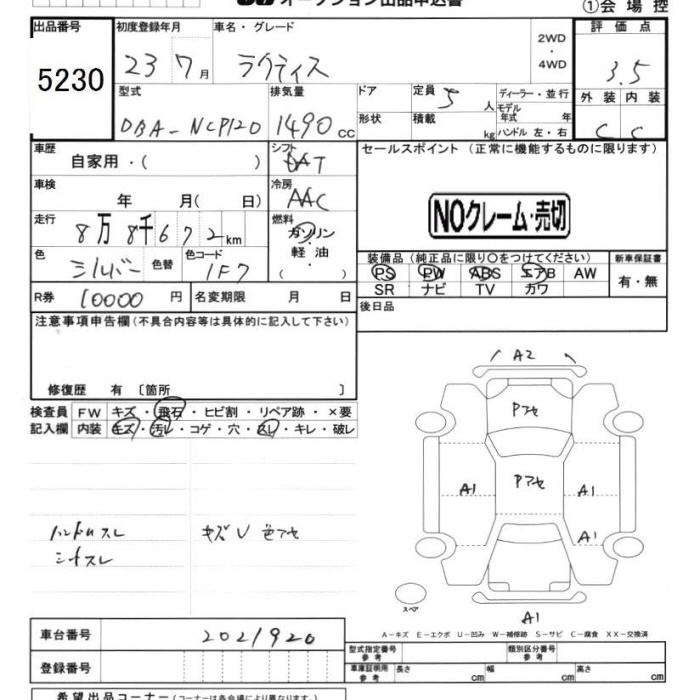 オークション出品申込書
①会場控
出品番号 初度登録年月 車名・グレード 2WD・4WD 評価点
5230 23 7月 ラクティス 3.5
型式 排気量 ドア 定員 5人 ディーラー・並行 外装 内装
DBA-NCP120 1490cc 形状 積載 kg モデル年式 年 ハンドル 左・右 C C
車歴 自家用・( ) シフト AT セールスポイント (正常に機能するものに限ります)
車検 年 月( 日) 冷房 AAC
NOクレーム・売切
走行 8万8千672km 燃料 ガソリン・軽油・( )
色 シルバー 色替 色コード 1F7
装備品 (純正品に限り○をつけてください) 新車保証書
PS PW ABS エアB AW 有・無
SR ナビ TV カワ
R券 10000円 名変期限 月 日 後日品
注意事項申告欄 (不具合内容等は具体的に記入して下さい)
修復歴 有 〔箇所 〕
検査員 FW キズ・飛石・ヒビ割・リペア跡・×要
記入欄 内装 キズ・汚レ・コゲ・穴・スレ・キレ・破レ
A2
Pアセ
A1 Pアセ A1
A1
ハンドルスレ キズU 色アセ
シートスレ
スペア
A1
A-キズ E-エクボ U-凹み W-補修跡 S-サビ C-腐食 XX-交換済
車台番号 2021920
登録番号
型式指定番号 参考 類別区分番号 参考
車庫証明用 参考 長さ cm 幅 cm 高さ cm
希望出品コーナー (コーナーは各会場により異なります。)